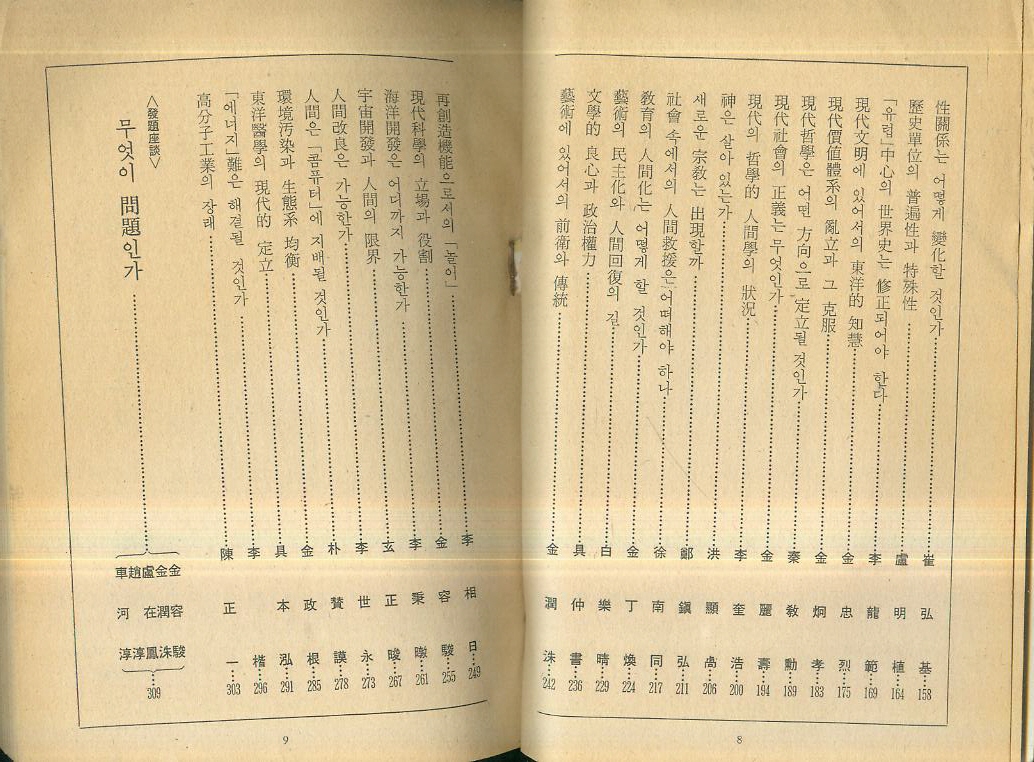 性關係는 어떻게 變化할 것인가……崔弘基…158
歷史單位의 普遍性과 特殊性……盧明植…164
「유럽」中心의 世界史는 修正되어야 한다……李龍範…169
現代文明에 있어서의 東洋的 知慧……金忠烈…175
現代價値體系의 亂立과 그 克服……金炯孝…183
現代哲學은 어떤 方向으로 定立될 것인가……秦敎勳…189
現代社會의 正義는 무엇인가……金麗壽…194
現代의 哲學的 人間學의 狀況……李奎浩…200
神은 살아 있는가……洪顯卨…206
새로운 宗敎는 出現할까……鄭鎭弘…211
社會 속에서의 人間救援은 어떠해야 하나……徐南同…217
敎育의 人間化는 어떻게 할 것인가……金丁煥…224
藝術의 民主化와 人間回復의 길……白樂晴…229
文學的 良心과 政治權力……具仲書…236
藝術에 있어서의 前衛와 傳統……金潤洙…242
8
再創造機能으로서의 「놀이」……李相日…249
現代科學의 立場과 役割……金容駿…255
海洋開發은 어디까지 가능한가……李秉暾…261
宇宙開發과 人間의 限界……玄正晙…267
人間改良은 가능한가……李世永…273
人間은 「콤퓨터」에 지배될 것인가……朴贊謨…278
環境汚染과 生態系 均衡……金政根…285
東洋醫學의 現代的 定立……具本泓…291
「에너지」難은 해결될 것인가……李楷…296
高分子工業의 장래……陳正一…303
〈發題座談〉
무엇이 問題인가……
金容駿
金潤洙
盧在鳳
趙淳
車河淳
…309
9